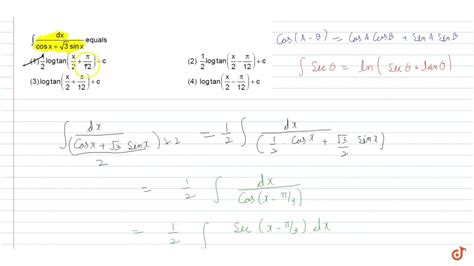 ∫ dx / (cos x + √3 sin x) equals
(1) 1/2 logtan(x/2 + π/12) + c (2) 1/2 logtan(x/2 − π/12) + c
(3) logtan(x/2 + π/12) + c (4) logtan(x/2 − π/12) + c
Cos(A-B) = CosA CosB + SinA SinB
∫ Sec θ = ln(Sec θ + tan θ)
∫ dx / ((Cosx + √3 Sinx)/2 × 2) = 1/2 ∫ dx / (1/2 · Cosx + √3/2 Sinx)
= 1/2 ∫ dx / Cos(x − π/3)
= 1/2 ∫ Sec(x − π/3) dx